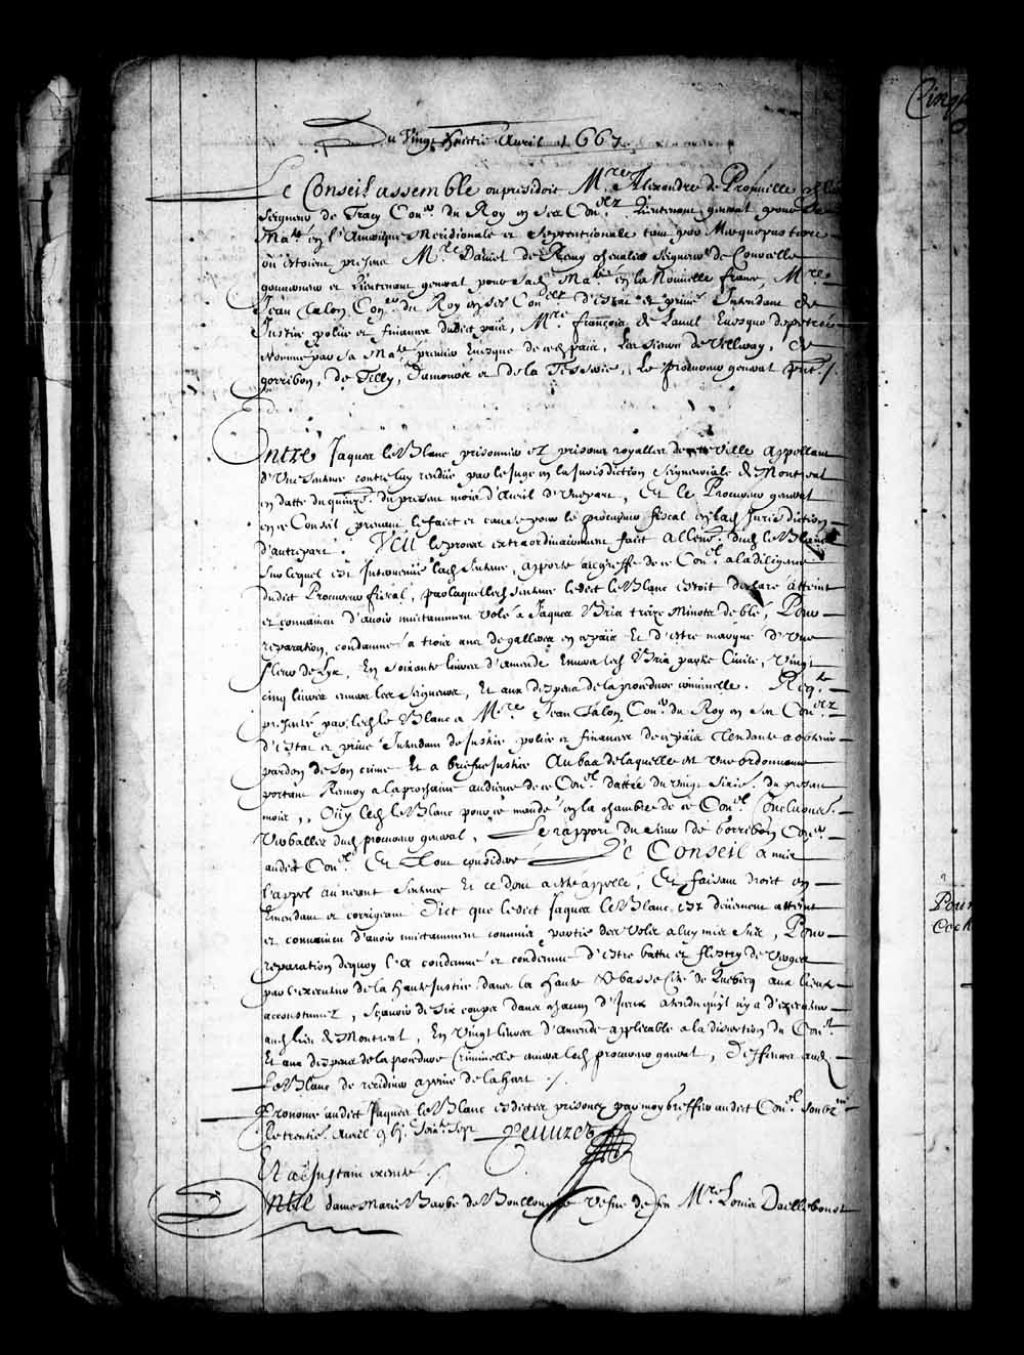 Du Vingt huictie Auril 1667
Le Conseil assemblé ou presidoit Mre Alexandre de Prouuille cheualier
Seigneur de Tracy Coner du Roy en ses Conels Lieutenant general pour Sa
Maté en l'Amerique Meridionale et Septentrionale tant par Mer que par terre
ou estoient presens Mre Daniel de Remy cheualier Seigneur de Courcelle
gouuerneur et Lieutenant general pour Sad. Maté en la Nouuelle france, Mre
Jean Talon Coner du Roy en ses Conels d'estat et priué Intendant de
Justice police et finances dudict païs, Mre françois de Laual Euesque de petrée
Nommé par Sa Maté premier Euesque de ced. païs, Les Sieurs de Villeray, de
gorribon, de Tilly, Damours et de la Tesserie, Le Procureur general pnt ./.
Entre Jaques le Blanc prisonnier es prisons royalles de ville Appellant
d'Vne Sentence contre luy rendüe par le Juge en la Jurisdiction Seigneuriale de Montreal
en datte du quinze du present mois d'Auril d'Vne part, Et le Procureur general
en ce Conseil prenant le faict et cause pour le procureur fiscal en lad. Jurisdiction
d'autre part. Veu le proces extraordinairement faict à l'enc. dud. le Blanc
Sur lequel est Interuenüe lad. Sentence, apporté au greffe de ce Conel a la diligence
dudict Procureur fiscal, par laquelle Sentence ledict le Blanc estoit declaré atteint
et conuaincu d'auoir nuictamment volé a Jaques Bria treize minots de blé, Pour
reparation, condamné a trois ans de galleres en ce païs Et d'estre marqué d'Vne
fleur de Lys, En soixante liures d'amende Enuers led. Bria partie Ciuile, Vingt
cinq liures enuers les Seigneurs, Et aux despens de la procedure criminelle. Reqte
presenté par led. le Blanc a Mre Jean Talon Coner du Roy en ses Conels
d'estat et priué Intendant de Justice police et finances de ce païs Tendante a obtenir
pardon de son crime Et a briefue Justice Au bas de laquelle est Vne ordonnance
portant Renuoy a la prochaine audience de ce Conel dattée du Vingt sixie. du present
mois, Oüy led. le Blanc pour ce mandé en la chambre de ce Conel Conclusions
Verballes dud. procureur general, Le rapport du sieur de Gorribon Coner
audict Conel Et Tout consideré Le Conseil a mis
l'appel au neant Sentence Et ce dont a esté appellé, Et faisant droict en
Emendant et corrigeant Dict que ledict Jaques le Blanc est deüement atteint
et conuaincu d'auoir nuictamment commis partie des Vols a luy mis sus, Pour
reparation dequoy l'a condamné et condamne d'estre battu et flestry de Verges
par l'executeur de la haute Justice dans la haute & basse de Quebecq aux lieux
accoustumez, Sçauoir de six coups dans chacun d'iceux attendu qu'il n'y a d'executeur
aud. lieu de Montreal, En Vingt liures d'amende applicable a la discretion du Conel
Et aux despens de la procedure Criminelle enuers led. procureur general, Deffences aud.
Le Blanc de recidiuer a peine de la hart ./.
Prononcé audict Jaques le Blanc esdictes prisons par moy greffier audict Conel soubzné
Le trentie Auril 
Et a l'Instant executé ./.
Entre dame Marie Barbe de Boullongne vefue de feu Mre Louis Dailleboust